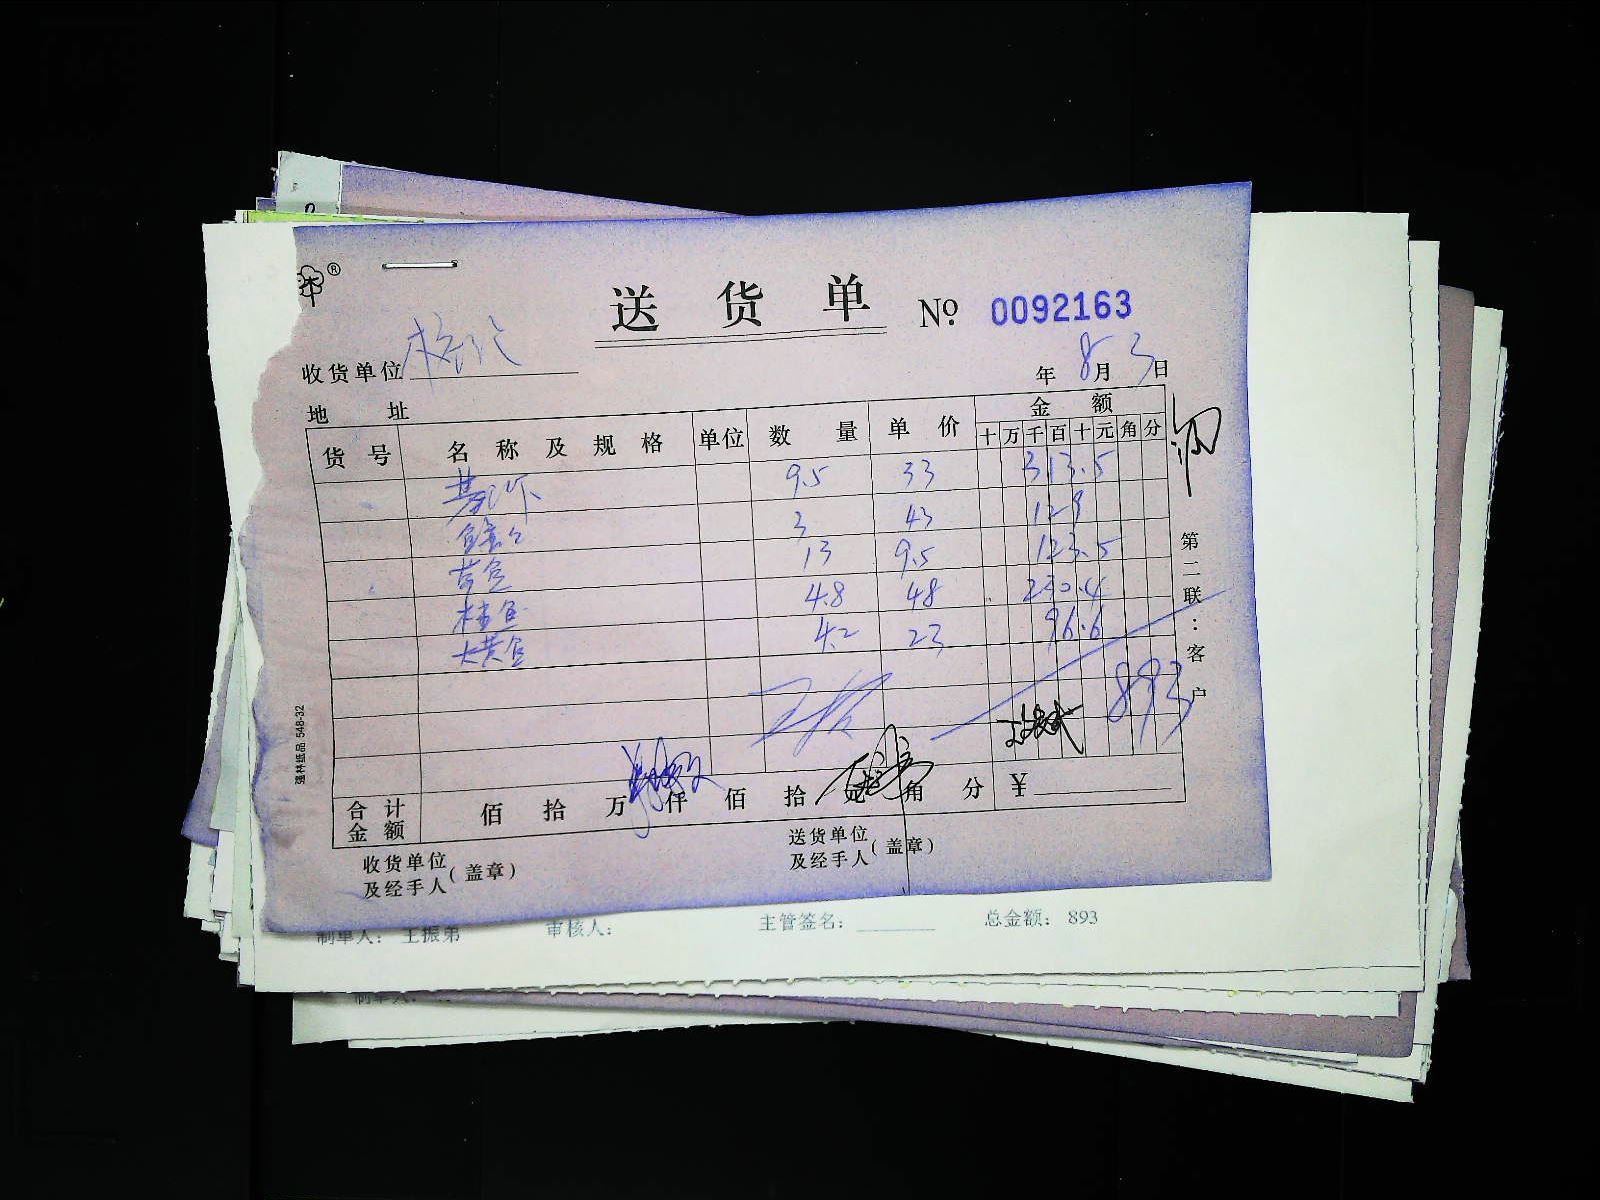 送 货 单 Nº 0092163
收货单位
年 8 月 3 日
地 址
货 号 名 称 及 规 格 单位 数 量 单 价 金 额
十 万 千 百 十 元 角 分
9.5 33 313.5
3 43 129
13 9.5 123.5
4.8 48 230.4
大黄鱼 4.2 23 96.6
893
合 计 金 额 佰 拾 万 仟 佰 拾 元 角 分 ¥
收货单位
及经手人(盖章)
送货单位
及经手人(盖章)
第二联:客户
强林纸品 548-32
制单人: 王振弟 审核人: 主管签名: 总金额: 893